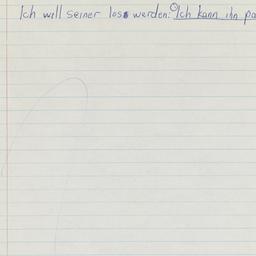 Ich will seiner los werden. Ich kann ihn pa